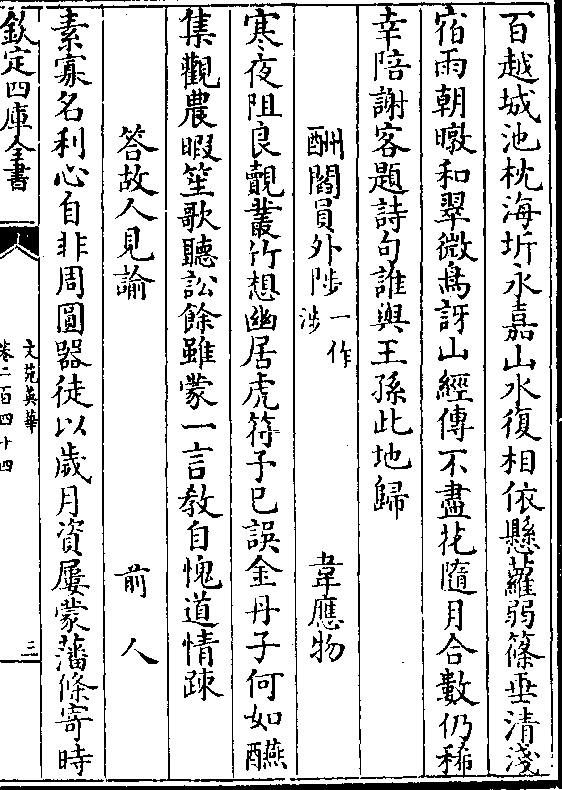 百越城池枕海圻永嘉山水復相依懸蘿弱篠垂清淺
宿雨朝暾和翠微鳥訝山經傳不盡花隨月令數仍稀
幸陪謝客題詩句誰與王孫此地歸
酬閻員外陟一作涉 韋應物
寒夜阻良覿叢竹想幽居虎符予已誤金丹子何如醼
集觀農暇笙歌聽訟餘雖蒙一言教自愧道情疎
答故人見諭 前人
素寡名利心自非周圓器徒以歲月資屢蒙藩條寄時
欽定四庫全書
文苑英華
卷二百四十四
三